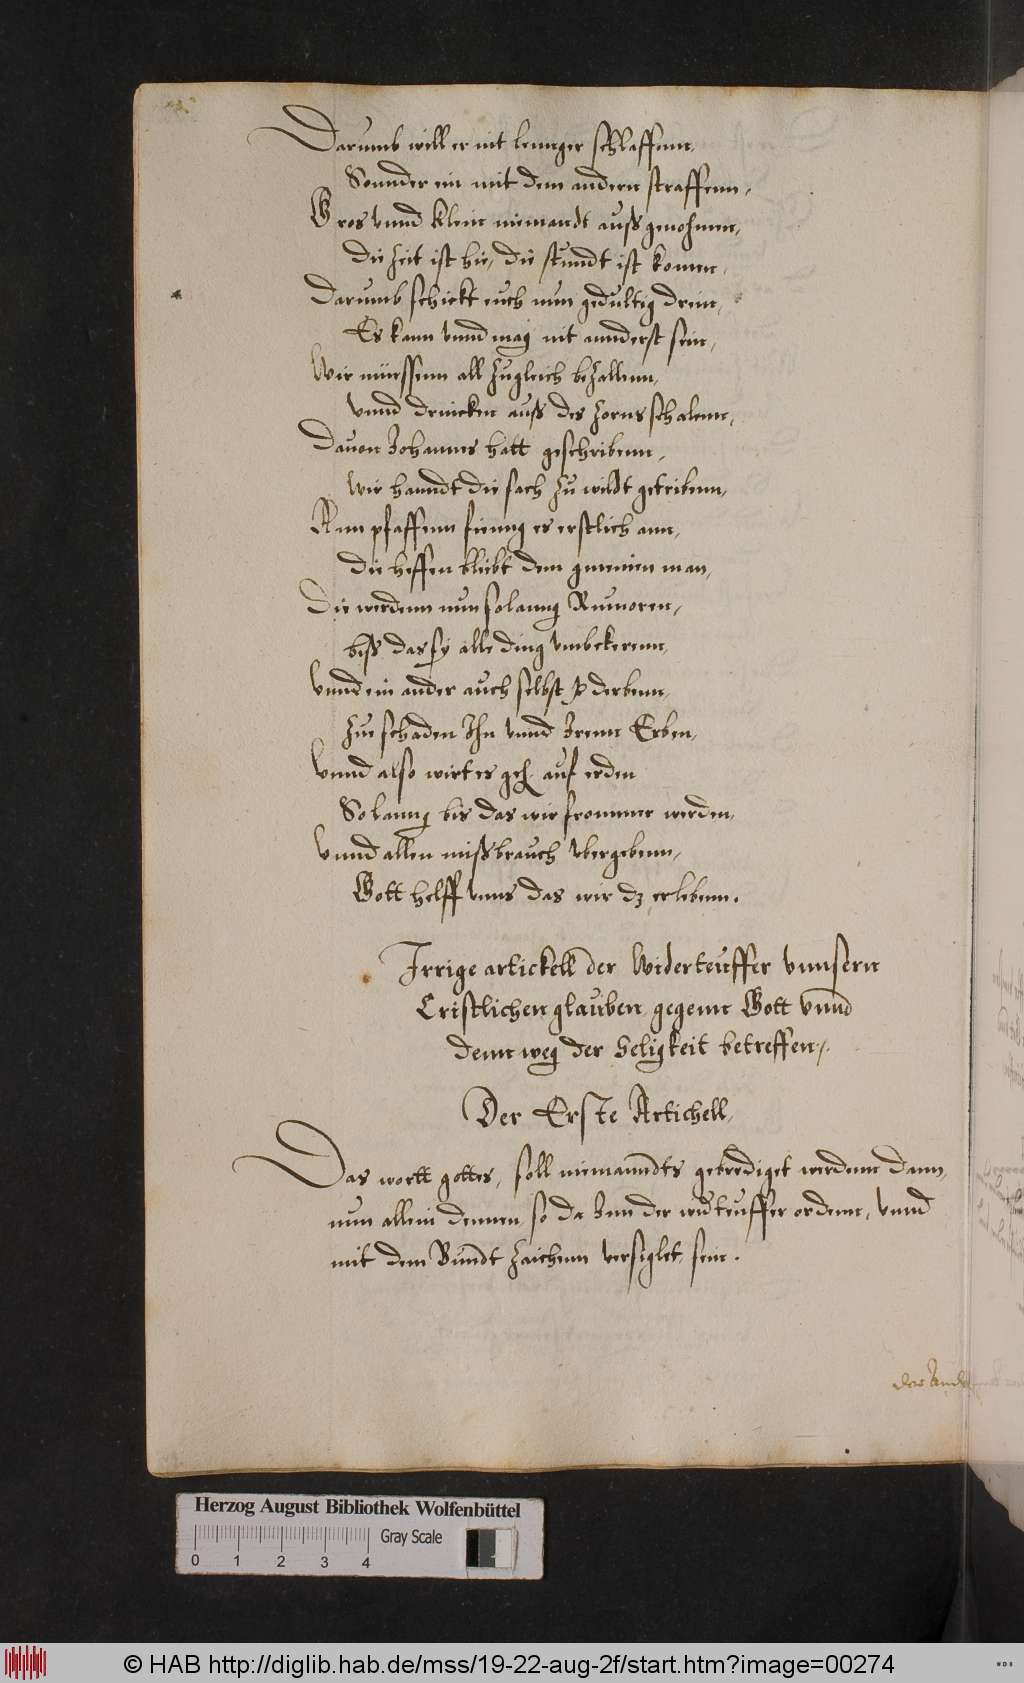 Darumb will er nit lennger schlaffenn,
Sonnder ein mit dem andern straffenn,
Gros vnnd klein niemandt auß genohmen,
die Zeit ist hie, die stundt ist komen,
Darumb schickt euch nun gedultig drein,
Es kann vnnd mag nit annderst sein,
Wir müessenn all zugleich bezallenn,
vnnd drincken auß des Zorns schalenn,
Dauon Johannes hatt geschribenn,
Wir hanndt die sach zu wildt getribenn,
Ann pfaffenn fienng es erstlich ann,
die heffen kliebt dem gmeinen man,
Die werdenn nun solanng Rumoren,
biß das sy alle ding vmbekerenn,
Vnnd ein ander auch selbst pderbenn,
Zue schaden Ihn vnnd Irenn Erben,
Vnnd also wirt es gen auf erden
So lanng bis das wir frommer werden,
Vnnd allen mißbrauch vbergebenn,
Gott helff vnns das wir dz erlebenn.
Irrige artickell der Widerteuffer vnnsern
Cristlichen glauben gegenn Gott vnnd
denn weg der Seligkeit betreffen,.
Der Erste Artichell,
Das wortt gottes, soll niemanndts gebrediget werdenn dann,
nun allein dennen, so da Inn der widteuffer ordenn, vnnd
mit dem Bundt Zaichenn versiglet, sein.
der Ander
Herzog August Bibliothek Wolfenbüttel
Gray Scale
0 1 2 3 4
© HAB http://diglib.hab.de/mss/19-22-aug-2f/start.htm?image=00274